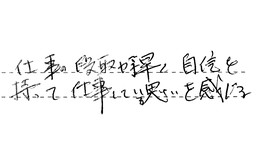 仕事の段取や早く自信を
持って仕事している思いを感じる